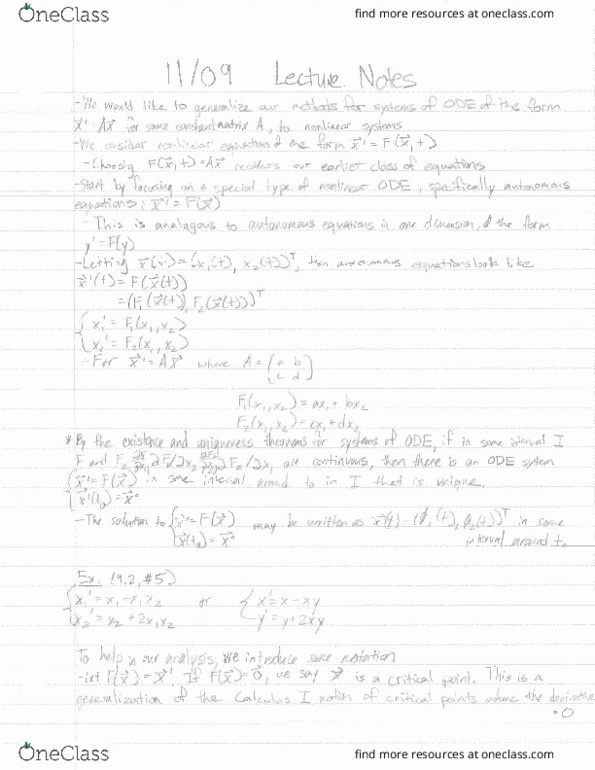 OneClass
find more resources at oneclass.com
11/09 Lecture Notes
-We would like to generalize our methods for systems of ODE of the form
x⃗' = Ax⃗ for some constant matrix A, to nonlinear systems
-We consider nonlinear equations of the form x⃗' = F(x⃗,t)
-Choosing F(x⃗,t)=Ax⃗ recovers our earlier class of equations
-Start by focusing on a special type of nonlinear ODE, specifically autonomous
equations: x⃗' = F(x⃗)
- This is analagous to autonomous equations in one dimension, of the form
y' = F(y)
-Letting x⃗(t) = (x₁(t), x₂(t))ᵀ, then autonomous equations look like
x⃗'(t) = F(x⃗(t))
= (F₁(x⃗(t)), F₂(x⃗(t)))ᵀ
{ x₁' = F₁(x₁,x₂)
x₂' = F₂(x₁,x₂)
-For x⃗' = Ax⃗ where A = (a b
c d)
F₁(x₁,x₂) = ax₁ + bx₂
F₂(x₁,x₂) = cx₁ + dx₂
* By the existence and uniqueness theorems for systems of ODE, if in some interval I
F and F₂ are continuous, then there is an ODE system
{ x⃗' = F(x⃗) in some interval around t₀ in I that is unique.
x⃗(t₀) = x⃗⁰
-The solution to { x⃗' = F(x⃗) may be written as x⃗(t) = (ϕ₁(t), ϕ₂(t))ᵀ in some
x⃗(t₀) = x⃗⁰ interval around t₀
Ex. (9.2, #5)
{ x₁' = x₁ - x₁x₂ or { x' = x - xy
x₂' = x₂ + 2x₁x₂ y' = y + 2xy
To help in our analysis, we introduce some notation
-Let F(x⃗) = x⃗'. If F(x⃗) = 0⃗, we say x⃗ is a critical point. This is a
generalization of the Calculus I notion of critical points where the derivative
= 0
OneClass
find more resources at oneclass.com